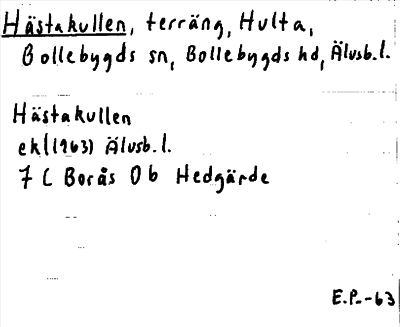 Hästakullen, terräng, Hulta,
Bollebygds sn, Bollebygds hd, Älvsb.l.
Hästakullen
ek(1963) Älvsb.l.
7 C Borås 0b Hedgärde
E.P.-63